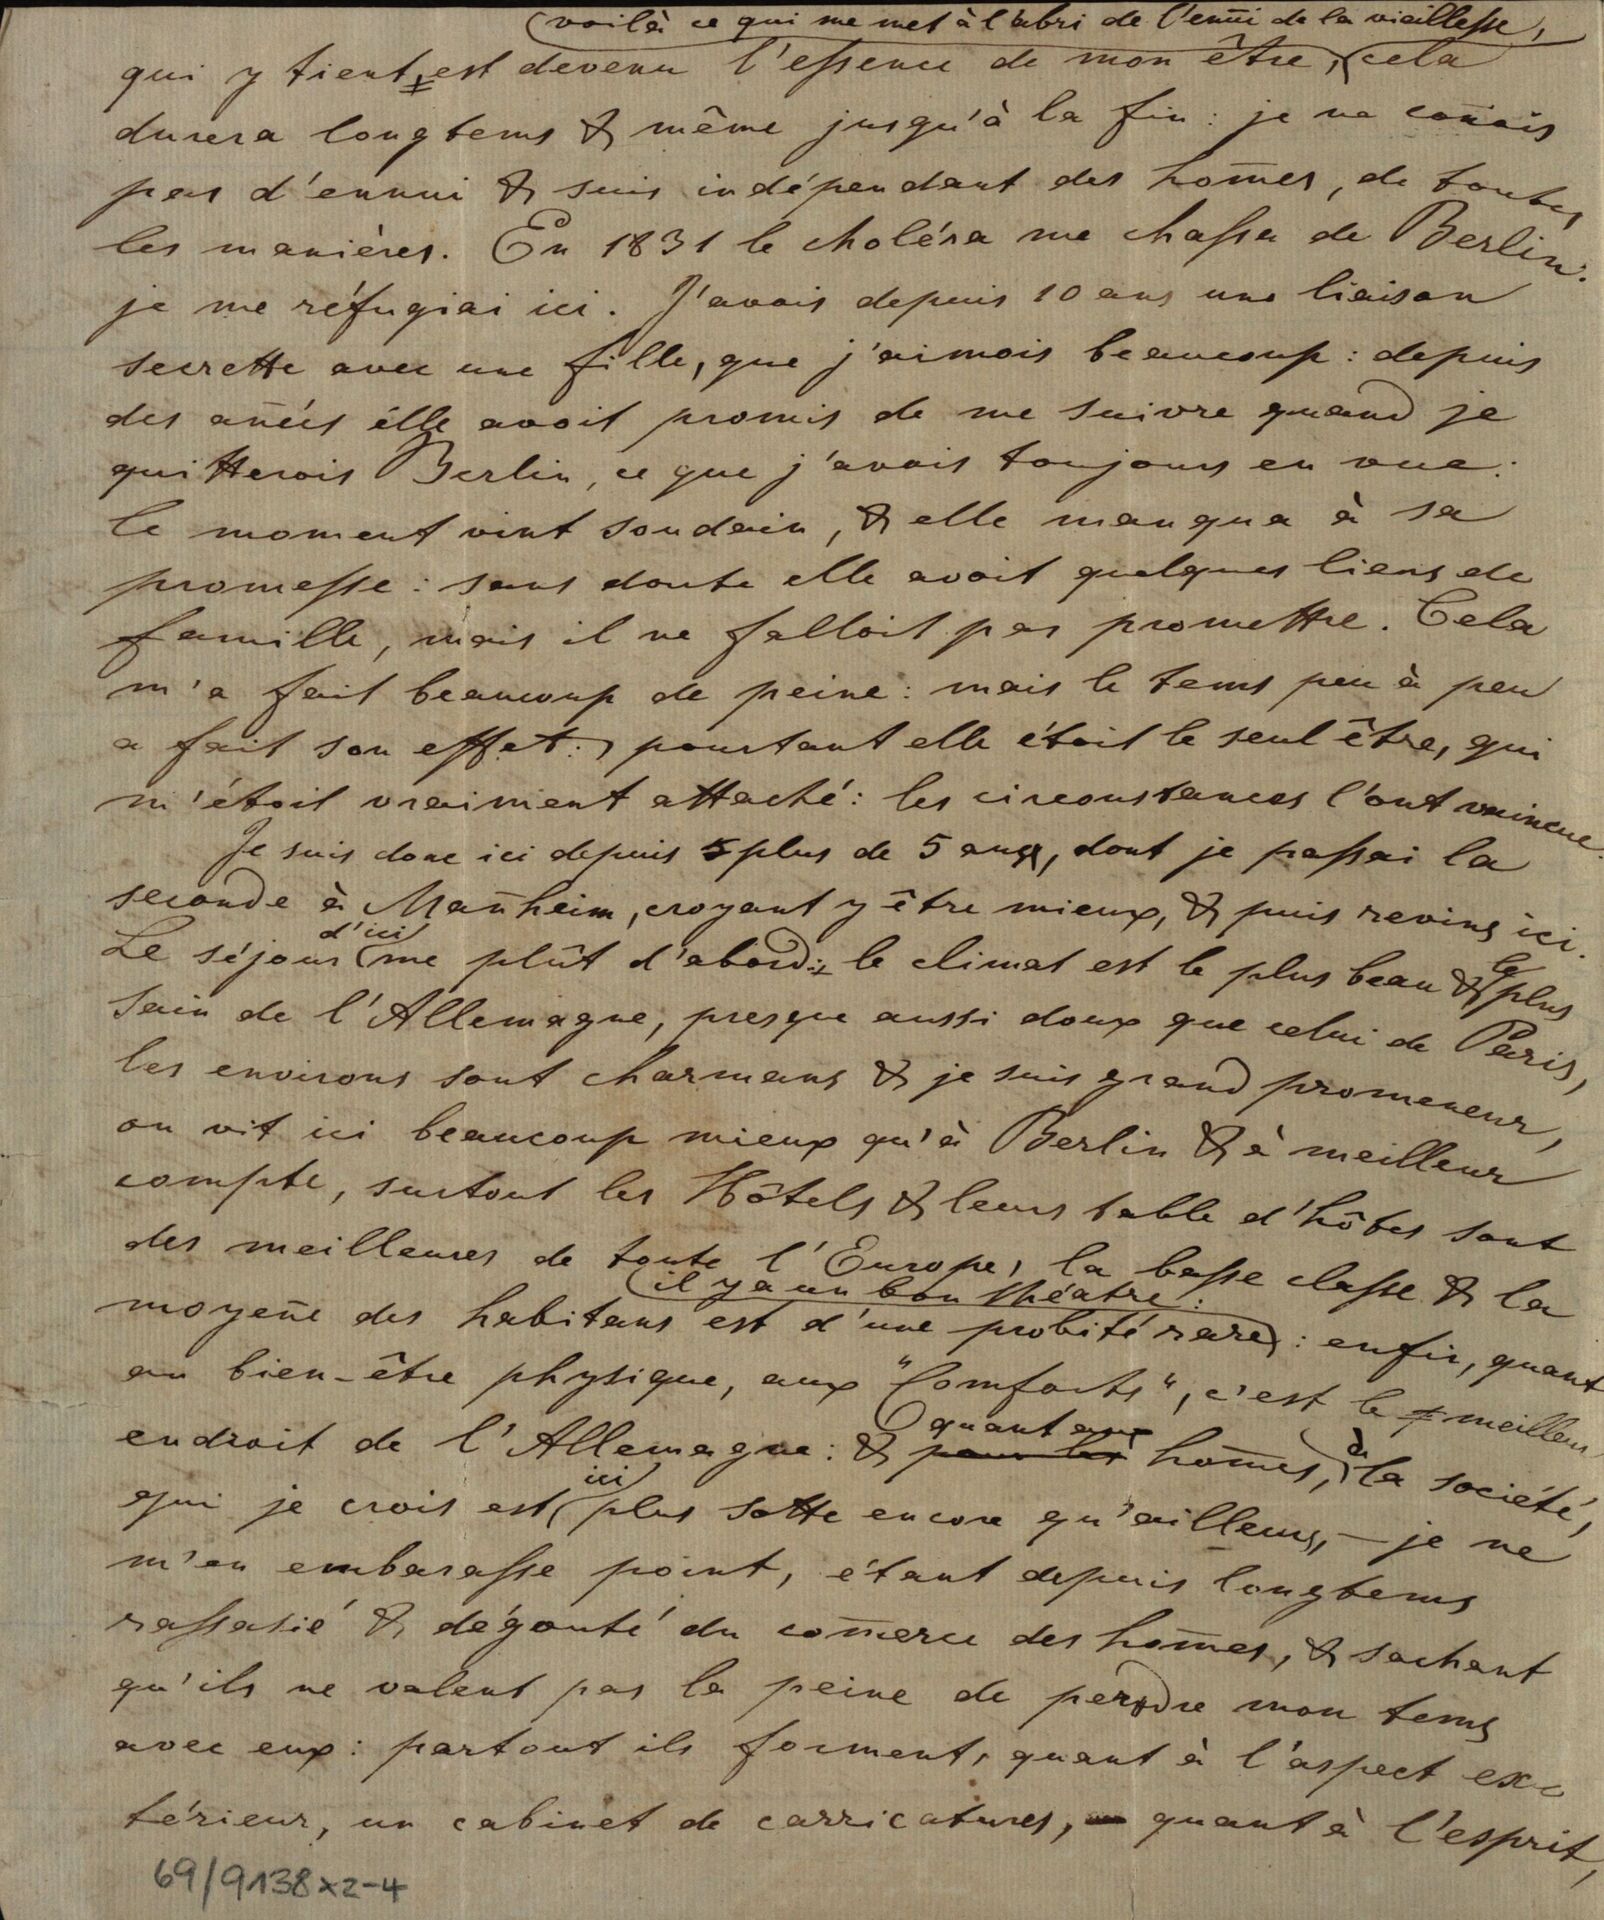 voilà ce qui me met à l'abri de l'en̄ui de la vieillesse,
qui y tient, est devenu l'essence de mon être, cela
durera longtems & même jusqu'à la fin : je ne con̄ois
pas d'ennui & suis indépendant des hom̄es, de toutes
les manières. En 1831 le choléra me chassa de Berlin:
je me réfugiai ici. J'avais depuis 10 ans une liaison
secrette avec une fille, que j'aimois beaucoup : depuis
des an̄ées élle avoit promis de me suivre quand je
quitterois Berlin, ce que j'avais toujours en vue :
le moment vint soudain, & elle manqua à sa
promesse : sans doute elle avoit quelques liens de
famille, mais il ne falloit pas promettre. Cela
m'a fait beaucoup de peine : mais le tems peu à peu
a fait son effet : pourtant elle étoit le seul être, qui
m'étoit vraiment attaché : les circonstances l'ont vaincue.
Je suis donc ici depuis plus de 5 ans, dont je passai la
seconde à Man̄heim, croyant y être mieux, & puis revins ici.
d'ici
Le séjour me plût d'abord : le climat est le plus beau & le plus
sain de l'Allemagne, presque aussi doux que celui de Paris,
les environs sont charmans & je suis grand promeneur,
on vit ici beaucoup mieux qu'à Berlin & à meilleur
compte, surtout les Hôtels & leurs table d'hôtes sont
des meilleures de toute l'Europe, la basse classe & la
il y a un bon théatre :
moyen̄e des habitans est d'une probité rare : enfin, quant
au bien-être physique, aux "Comforts", c'est le meilleur
quant aux
endroit de l'Allemagne : & pour les hom̄es, à la société,
ici
qui je crois est plus sotte encore qu'ailleurs, — je ne
m'en embarasse point, étant depuis longtems
rassasié & dégouté du com̄erce des hom̄es, & sachant
qu'ils ne valent pas la peine de perdre mon tems
avec eux : partout ils forment, quant à l'aspect ex-
térieur, un cabinet de carricatures, quant à l'esprit,
69/9138x2-4